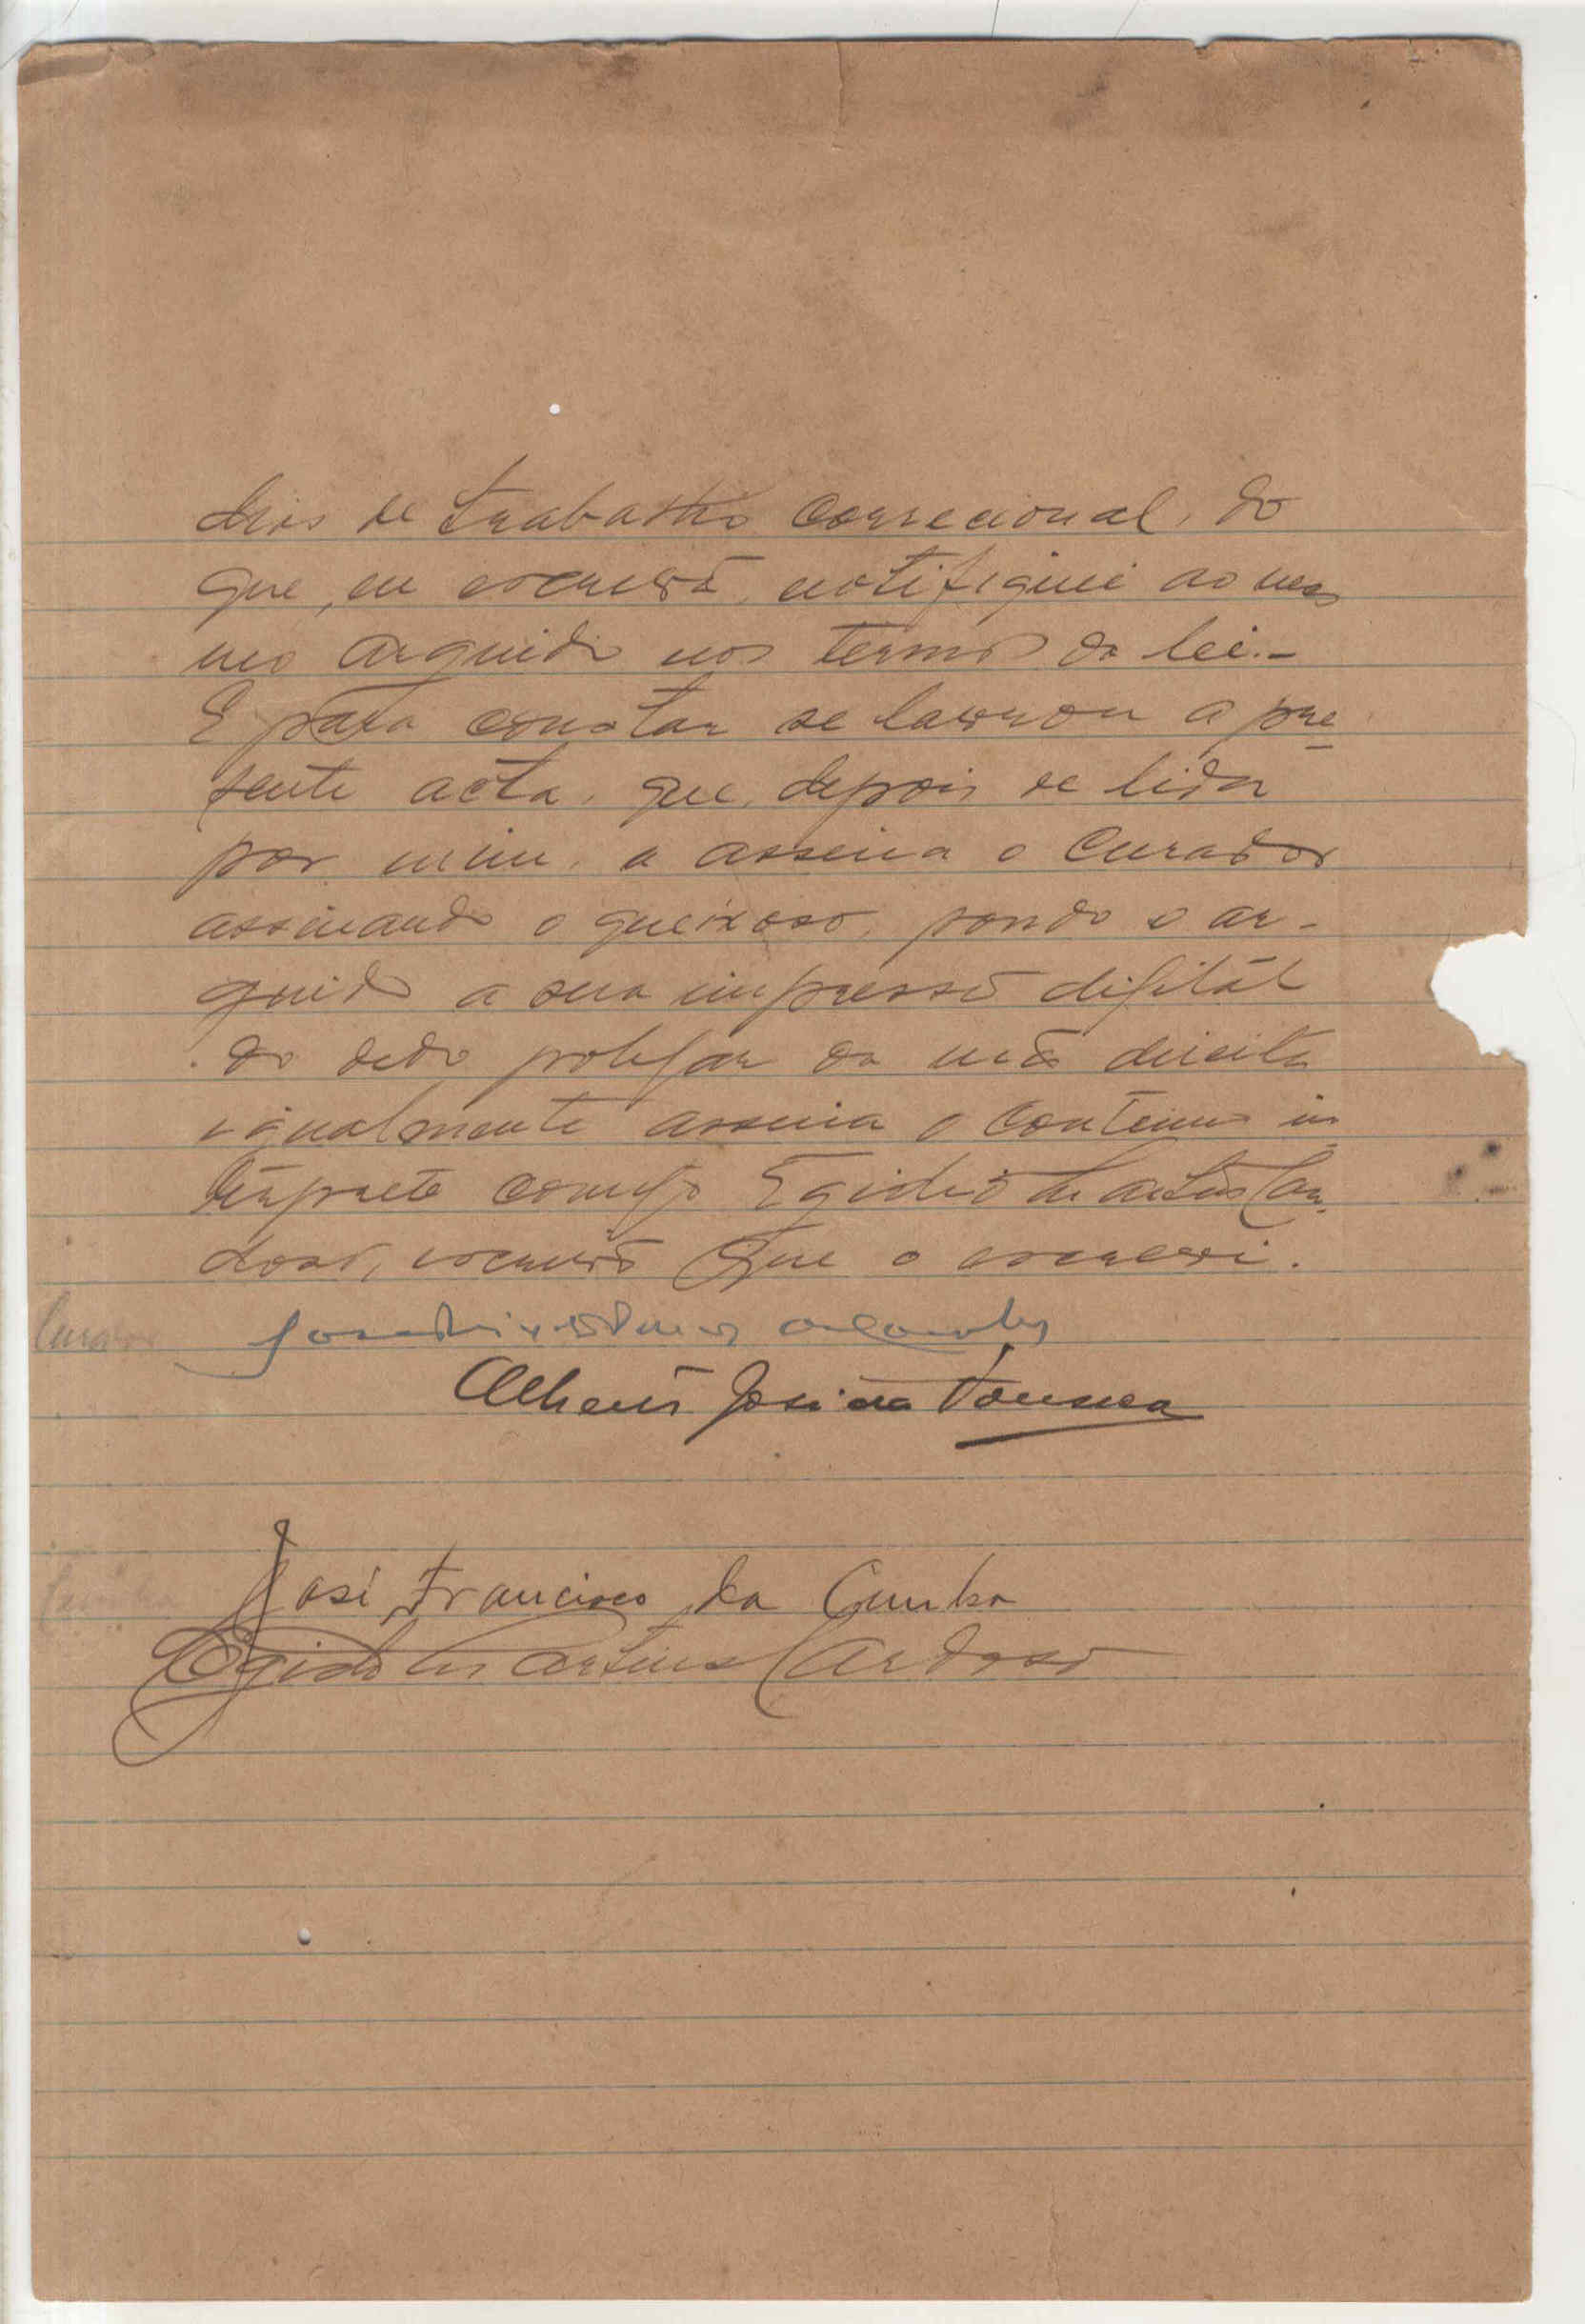 dias de trabalho correcional, do
que, eu escrivão, notifiquei ao mes
mo arguido nos termos da lei.-
E para constar se lavrou a pre
sente acta, que, depois de lida
por mim, a assina o Curador
assinando o queixoso, pondo o ar-
guido a sua impressão digital
do dedo polegar da mão direita
igualmente assina o contínuo in
térprete comigo Egidio Martins Car
doso, escrivão que o escrevi.
Curador
José da Fonseca
José Francisco da Cunha
Egidio Martins Cardoso